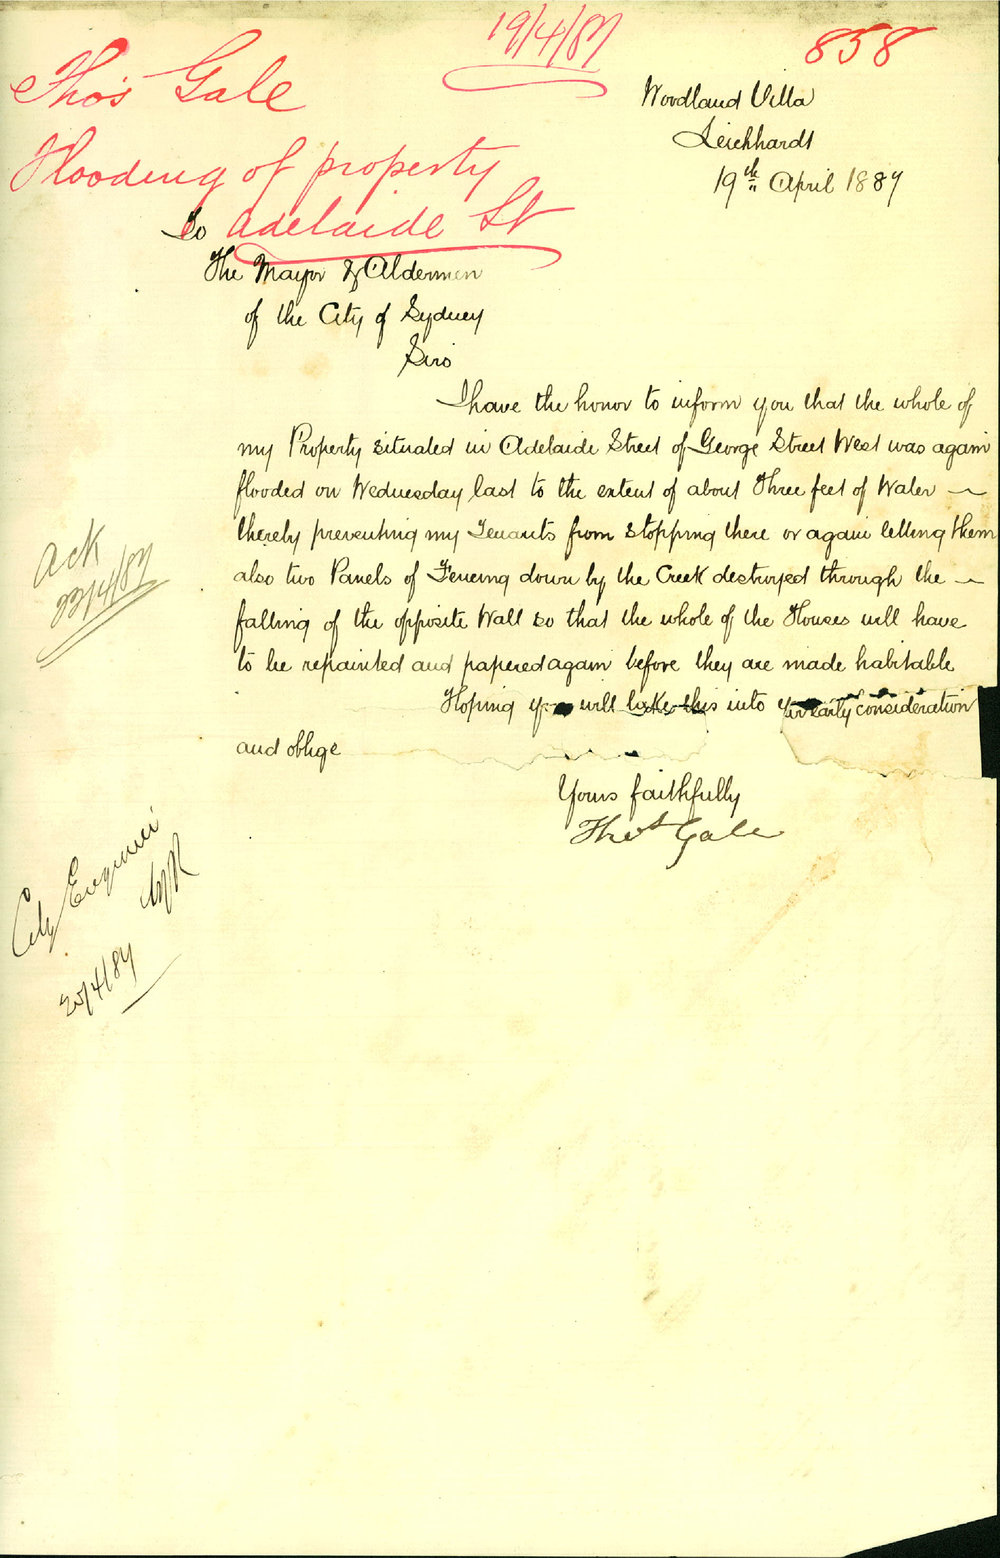 19/4/87
858
Thos Gale
Flooding of property
Adelaide St
Woodland Villa
Leichhardt
19th April 1887
To
The Mayor & Aldermen
of the City of Sydney
Sirs
I have the honor to inform you that the whole of
my Property situated in Adelaide Street of George Street West was again
flooded on Wednesday last to the extent of about Three feet of Water
thereby preventing my Tenants from stopping there or again letting them
also two Panels of Fencing down by the Creek destroyed through the
falling of the opposite Wall so that the whole of the Houses will have
to be repainted and papered again before they are made habitable
Hoping you will take this into your early consideration
and oblige
Yours faithfully
Thos Gale
Ack
23/4/87
City Engineer
20/4/87